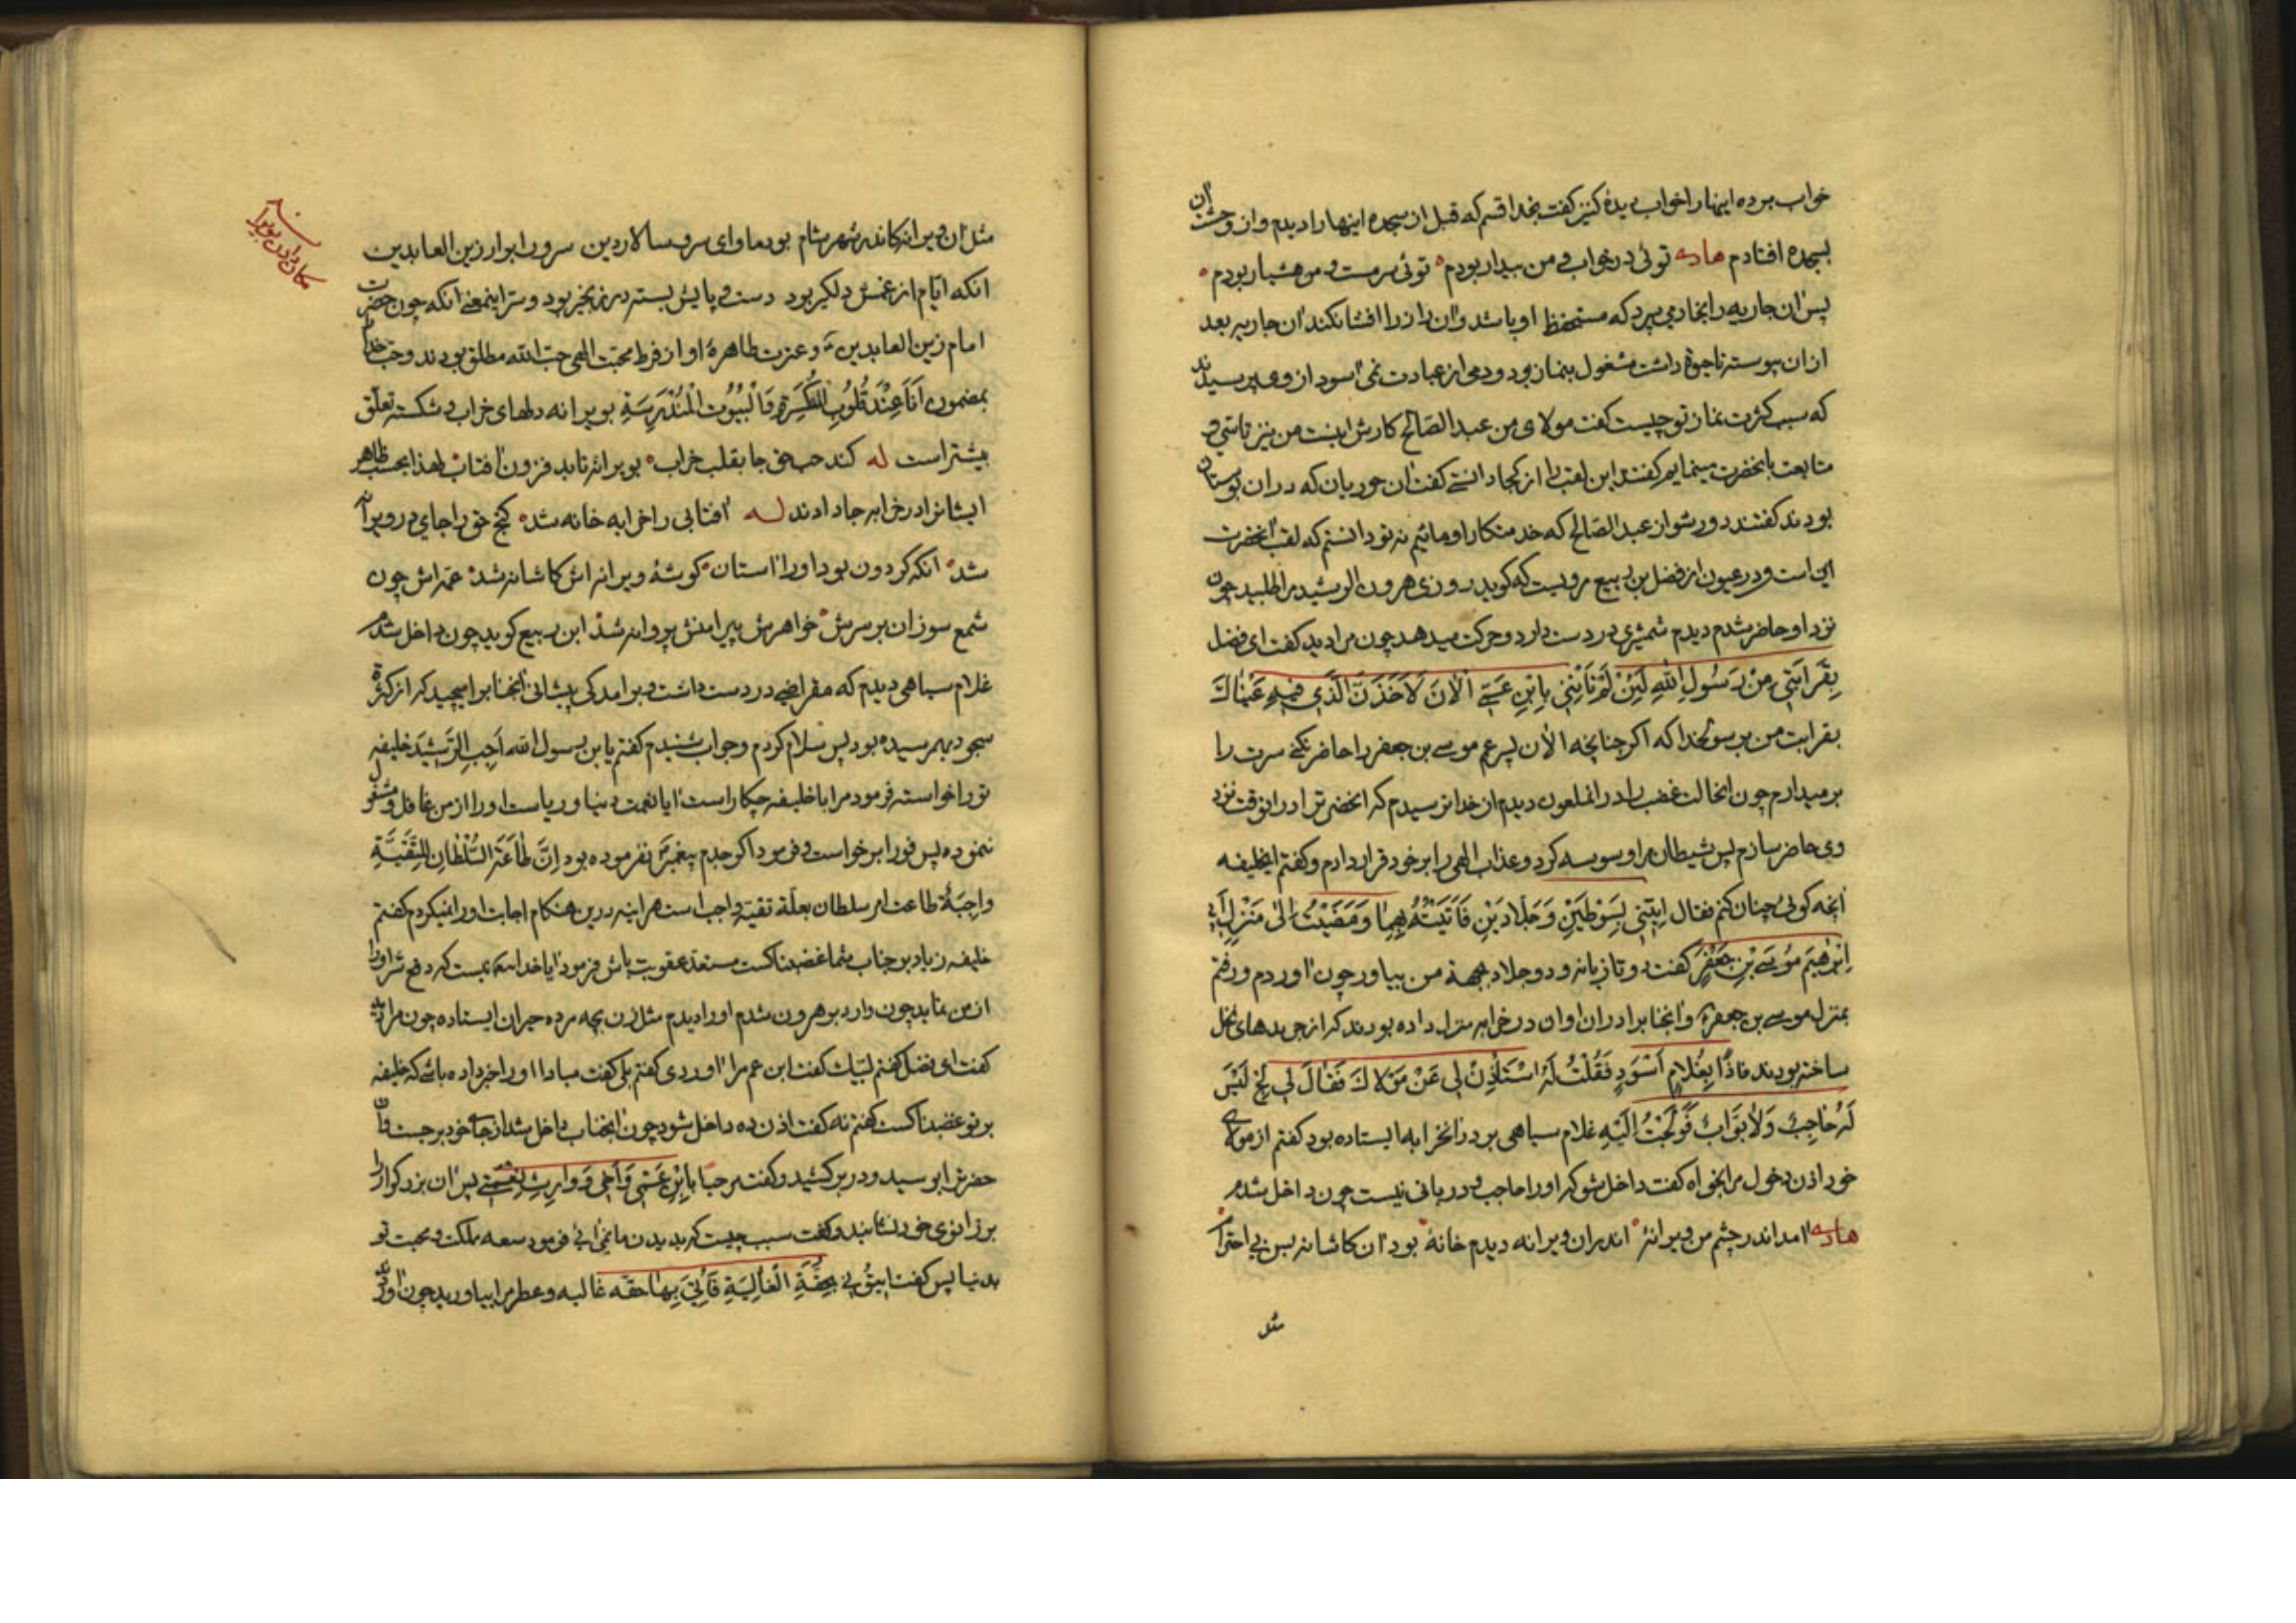 خواب برده اینها را خواب دیدهٔ کنیز گفت بخدا قسم که قبل از سجده اینها را دیدم و از وحشت آن
بسجده افتادم توئی در خواب و من بیدار بودم توئی سرمست و من هشیار بودم
پس آن جاریه را بخادمی سپرد که مستحفظ او باشد و آن راز را افشا نکند آن جاریه بعد
از آن پیوسته تا حیوة داشت مشغول بنماز بود و دمی از عبادت نمی آسود از وی پرسیدند
که سبب کثرت نماز تو چیست گفت مولای من عبد الصالح کارش اینست من نیز تاسی و
متابعت بانحضرت مینمایم گفتند این لقب را از کجا دانستی گفت آن حوریان که در آن بوستان
بودند گفتند دور شو از عبد الصالح که خدمتکار او مائیم نه تو دانستم که لقب آنحضرت
این است و در عیون از فضل بن ربیع مرویست که گوید روزی هرون الرشید مرا طلبید چون
نزد او حاضر شدم دیدم شمشیری در دست دارد و حرکت میدهد چون مرا دید گفت ای فضل
بِقَرابَتی مِنْ رَسُولِ اللهِ لَئِنْ لَمْ تَأْتِنی بِابْنِ عَمّی الْآنَ لَآخُذَنَّ الَّذی فیهِ عَیْناكَ
بقرابت من برسولخدا که اگر چنانچه الآن پسر عم موسی بن جعفر را حاضر نکنی سرت را
برمیدارم چون انحالت غضب را در انملعون دیدم از خدا ترسیدم که انحضرترا در انوقت نزد
وی حاضر سازم پس شیطان مرا وسوسه کرد و عذاب الهی را بر خود قرار دادم و گفتم ایخلیفه
آنچه گوئی چنان کنم فقال ایتِنی بِسَوْطَیْنِ وَ جَلّادَیْنِ فَاَتَیْتُهُ بِهِما وَ مَضَیْتُ اِلی مَنْزِلِ اَبی
اِبْرهیمَ مُوسَی بْنِ جَعْفَرٍ گفت دو تازیانه و دو جلاد بجهة من بیاور چون آوردم و رفتم
بمنزل موسی بن جعفر و آنجناب در آن اوان در خرابه منزل داده بودند که از جریدهای نخل
ساخته بودند فاذا بِغُلامٍ اَسْوَدٍ فَقُلْتُ لَهُ اسْتَأْذِنْ لی عَنْ مَوْلاكَ فَقالَ لی لِجْ لَیْسَ
لَهُ حاجِبٌ وَلا بَوّابٌ فَوَلَجْتُ اِلَیْهِ غلام سیاهی بر در آنخرابه ایستاده بود گفتم از مولای
خود اذن دخول مرا بخواه گفت داخل شو که او را حاجب و دربانی نیست چون داخل شدم
آمد اندر چشم من ویرانهٔ اندران ویرانه دیدم خانهٔ بود آن کاشانه بس بی احترام
مثل
مثل آن ویرانه کاندر شهر شام بود ماوای سر و سالار دین سرور ابرار زین العابدین
آنکه ایام از غمش دلگیر بود دست و پایش بسته در زنجیر بود و سر اینمعنی آنکه چون حضرت
امام زین العابدین و عترت طاهرهٔ او از فرط محبت الهی حب الله مطلق بودند و حب خدا
بمضمون اَنَا عِنْدَ قُلُوبِ الْمُنْکَسِرَةِ وَالْبُیُوتِ الْمُنْدَرِسَةِ بویرانه دلهای خراب و شکسته تعلق
بیشتر است له کند حب حق جا بقلب خراب بویرانه تابد فزون آفتاب لهذا بحسب ظاهر
ایشانرا در خرابه جا دادند له آفتابی را خرابه خانه شد گنج حق را جای در ویرانه
شد آنکه گردون بود او را آستان گوشهٔ ویرانه اش کاشانه شد عمه اش چون
شمع سوزان بر سرش خواهرش پیرامنش پروانه شد ابن ربیع گوید چون داخل شدم
غلام سیاهی دیدم که مقراضی در دست داشت و برآمدگی پیشانی آنجناب را میچید که از کثرة
سجود بهم رسیده بود پس سلام کردم و جواب شنیدم گفتم یابن رسول الله اَجِبِ الرَّشیدَ خلیفه
تو را خواسته فرمود مرا با خلیفه چکار است آیا نعمت دنیا و ریاست او را از من غافل و مشغول
ننموده پس فورا برخواست و فرمود اگر جدم پیغمبر نفرموده بود اِنَّ طاعَةَ السُّلْطانِ لِلتَّقِیَّةِ
واجِبَةٌ طاعت امر سلطان بعلة تقیه واجب است هر اینه درین هنگام اجابت او را نمیکردم گفتم
خلیفه زیاد بر جناب شما غضبناکست مستعد عقوبت باش فرمود آیا خدا نیست که دفع شر او را
از من نماید چون وارد بر هرون شدم او را دیدم مثل زن بچه مرده حیران ایستاده چون مرا دید
گفت ای فضل گفتم لبیك گفت ابن عم مرا آوردی گفتم بلی گفت مبادا او را خبر داده باشی که خلیفه
بر تو غضبناکست گفتم نه گفت اذن ده داخل شود چون آنجناب داخل شد از جای خود برجست و آن
حضرترا بوسید و در بر کشید و گفت مرحبا بِابْنِ عَمّی وَ اَخی وَ وارِثِ نِعْمَتی پس آن بزرگوار را
بر زانوی خود نشانید و گفت سبب چیست که بدیدن ما نمی آئی فرمود سعه ملکت و محبت تو
بدنیا پس گفت ایتُونی بِحُقَّةِ الْغالِیَةِ فَاُتِیَ بِها حقه غالیه و عطر مرا بیاورید چون آوردند